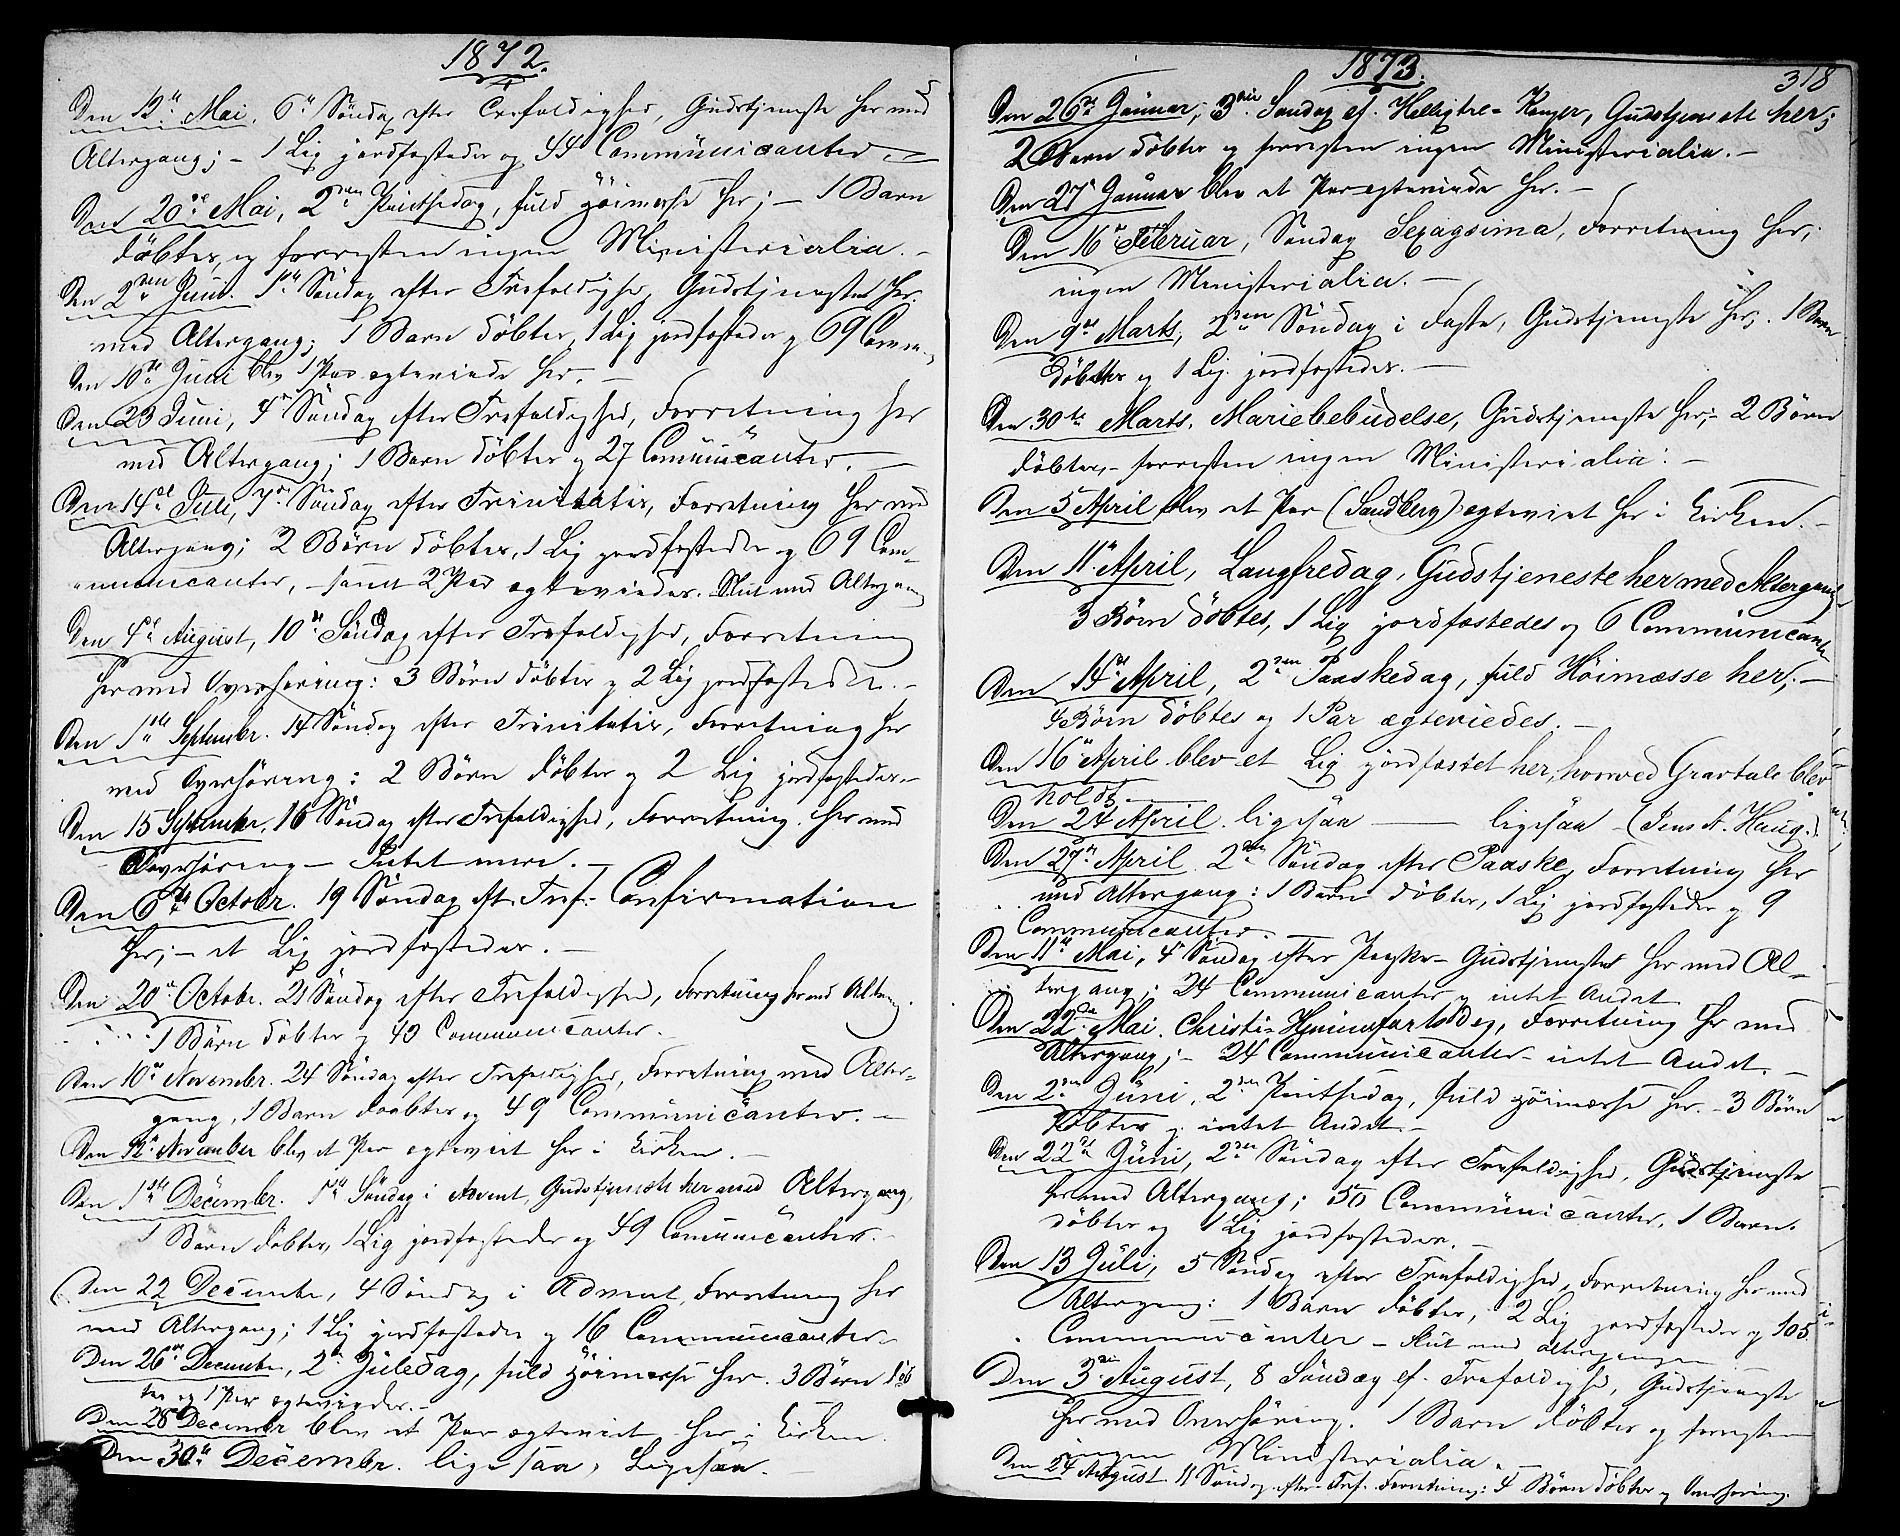 1872.
Den 12te Mai, 6te Søndag efter Trefoldighed, Gudstjeneste her med
Altergang; – 1 Lig jordfæstedes og 44 Communicanter. –
Den 20de Mai, 2den Pintsedag, fuld Høimesse her; – 1 Barn
døbtes, og forresten ingen Ministerialia. –
Den 2den Juni. 1ste Søndag efter Trefoldighed, Gudstjeneste her.
med Altergang; 1 Barn døbtes, 1 Lig jordfæstedes og 69 Comm.
Den 16de Juni blev 1 Par egteviede her. –
Den 23 Juni, 4de Søndag efter Trefoldighed, Forretning her
med Altergang; 1 Barn døbtes og 27 Communicanter. –
Den 14de Juli, 7de Søndag efter Trinitatis, Forretning her med
Altergang; 2 Børn døbtes, 1 Lig jordfæstedes og 69 Com-
municanter, – samt 2 Par egteviedes. Slut med Altergang
Den 4de August, 10de Søndag efter Trefoldighed, Forretning
her med Overhøring: 3 Børn døbtes og 2 Lig jordfæstedes. –
Den 1ste Septembr. 14 Søndag efter Trinitatis, Forretning her
med Overhøring: 2 Børn døbtes og 2 Lig jordfæstedes. –
Den 15 Septembr, 16 Søndag efter Trefoldighed, Forretning her med
Overhøring – Intet mere. –
Den 6te Octobr. 19 Søndag eft. Tref. – Confirmation
her; – et Lig jordfæstedes. –
Den 20de Octobr. 21 Søndag efter Trefoldighed, Forretning her med Alterg.
1 Barn døbtes og 43 Communicanter.
Den 10de Novembr. 24 Søndag efter Trefoldighed, Forretning med Alter-
gang, 1 Barn døbtes og 49 Communicanter. –
Den 12te November blev et Par egteviet her i Kirken. –
Den 1ste Decembr. 1ste Søndag i Advent, Gudstjeneste her med Altergang,
1 Barn døbtes, 1 Lig jordfæstedes og 49 Communicanter. –
Den 22 Decembr, 4 Søndag i Advent, Forretning her
med Altergang; 1 Lig jordfæstedes og 16 Communicanter. –
Den 26de Decembr, 2den Juledag, fuld Høimesse her. 3 Børn døb-
tes og 1 Par egteviedes. –
Den 28 Decembr blev et Par egteviet her i Kirken
Den 30te Decembr. ligesaa, Ligesaa. –
1873. 318
Den 26de Januar, 3die Søndag ef. Helligtre-Konger, Gudstjeneste her;
2 Børn døbtes og forresten ingen Ministerialia. –
Den 27de Januar blev et Par egteviede her. –
Den 16de Februar, Søndag Sexagsima, Forretning her,
ingen Ministerialia. –
Den 9de Marts, 2den Søndag i Faste, Gudstjeneste her, 1 Barn
døbtes og 1 Lig jordfæstedes. –
Den 30te Marts, Mariebebudelse, Gudstjeneste her; 2 Børn
døbtes, – forresten ingen Ministerialia. –
Den 5 April blev et Par (Sandberg) egteviet her i Kirken. –
Den 11te April, Langfredag, Gudstjeneste her med Altergang,
3 Børn døbtes, 1 Lig jordfæstedes og 6 Communicanter
Den 14de April, 2den Paaskedag, fuld Høimæsse her; –
4 Børn døbtes og 1 Par ægteviedes. –
Den 16de April blev et Lig jordfæstet her, hvorved Gravtale blev
holdt. –
Den 24 April ligesaa ligesaa (Jens A. Haug.)
Den 27de April 2den Søndag efter Paaske, Forretning her
med Altergang: 1 Barn døbtes, 1 Lig jordfæstedes og 9
Communicanter. –
Den 11te Mai, 4de Søndag efter Paaske – Gudstjeneste her med Al-
tergang; 24 Communicanter og intet Andet
Den 22de Mai. Christi-Himmelfartsdag, Forretning her med
Altergang; – 24 Communicanter – intet Andet. –
Den 2den Juni, 2den Pintsedag, fuld Høimesse her. – 3 Børn
døbtes og intet Andet. –
Den 22de Juni, 2den Søndag efter Trefoldighed, Gudstjeneste
her med Altergang; 50 Communicanter, 1 Barn
døbtes og 1 Lig jordfæstedes. –
Den 13 Juli, 5 Søndag efter Trefoldighed, Forretning her med
Altergang: 1 Barn døbtes, 2 Lig jordfæstedes og 105
Communicanter – Slut med altergangen
Den 3die August, 8 Søndag ef. Trefoldighed, Gudstjeneste
her med Overhøring. 1 Barn døbtes og forresten
ingen Ministerialia. –
Den 24 August 11 Søndag efter Tref. Forretning: 4 Børn døbtes og Overhøring.